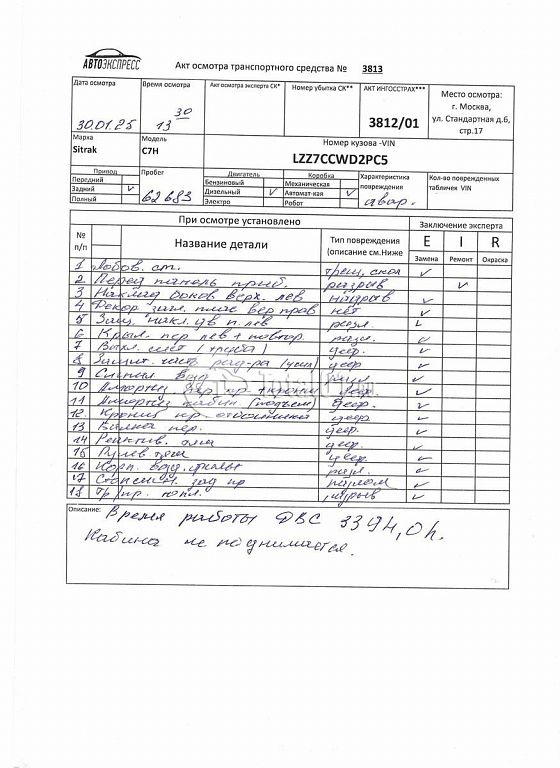 АВТОЭКСПРЕСС
Акт осмотра транспортного средства № 3813
Дата осмотра
30.01.25
Время осмотра
13 30
Акт осмотра эксперта СК*
Номер убытка СК**
АКТ ИНГОССТРАХ***
3812/01
Место осмотра:
г. Москва,
ул. Стандартная д.6,
стр.17
Марка
Sitrak
Модель
C7H
Номер кузова -VIN
LZZ7CCWD2PC5
Привод
Передний
Задний V
Полный
Пробег
62683
Двигатель
Бензиновый
Дизельный V
Электро
Коробка
Механическая
Автомат-кая V
Робот
Характеристика
повреждения
авар.
Кол-во поврежденных
табличек VIN
При осмотре установлено
Заключение эксперта
№
п/п
Название детали
Тип повреждения
(описание см.Ниже
E I R
Замена Ремонт Окраска
1 Лобов. ст. трещ, скол V
2 Перед панель приб. разрыв V
3 Наклад боков верх. лев надрыв V
4 Декор загл. плас вер прав нет V
5 Защ. накл. п. лев разл. V
6 Крыл. пер лев + повтор. разл. V
7 Выхл. сист (труба) деф. V
8 Защит. част. рад-ра деф V
9 Сигнал разл V
10 Амортиз деф. V
11 Амортиз кабин (подъем) деф. V
12 Кроншт пр. отбойника деф V
13 Балка пер. деф. V
14 Реактив. деф. V
15 Рулев тяга деф. V
16 Корп. возд. фильт разл. V
17 зад пр излом. V
18 разрыв V
Описание:
Время работы ДВС 3394,0 h.
Кабина не поднимается.